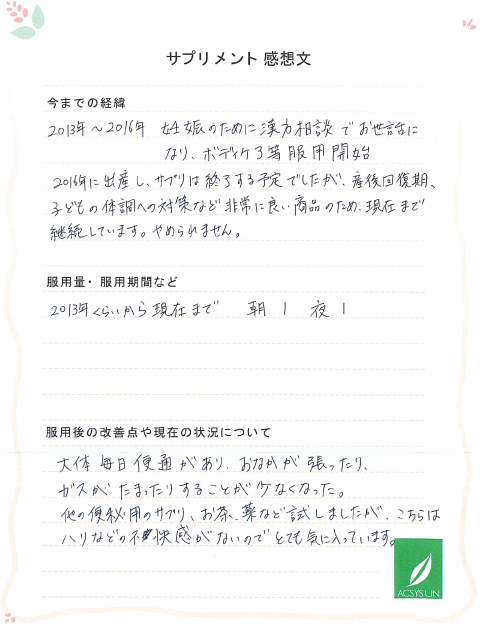 サプリメント 感想文
今までの経緯
2013年〜2016年 妊娠のために漢方相談でお世話に
なり、ボディケア等服用開始
2016年に出産し、サプリは終了する予定でしたが、産後回復期、
子どもの体調への対策など非常に良い商品のため、現在まで
継続しています。やめられません。
服用量・服用期間など
2013年くらいから現在まで 朝 1 夜 1
服用後の改善点や現在の状況について
大体毎日便通があり、おなかが張ったり、
ガスがたまったりすることが少なくなった。
他の便秘用のサプリ、お茶、薬など試しましたが、こちらは
ハリなどの不快感がないのでとても気に入っています。
ACSYS LIN